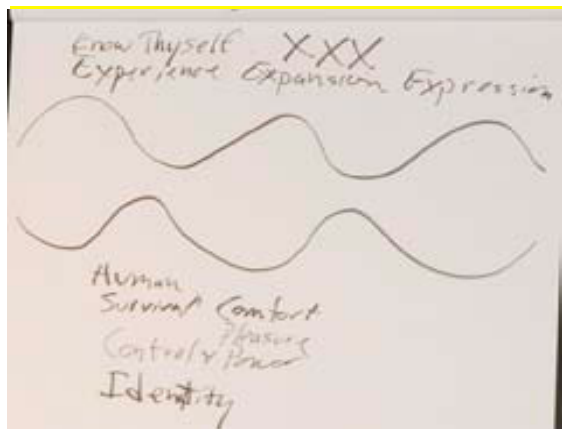 Know Thyself XXX
Experience Expansion Expression
Human
Survival Comfort
Pleasure
Control & Power
Identity